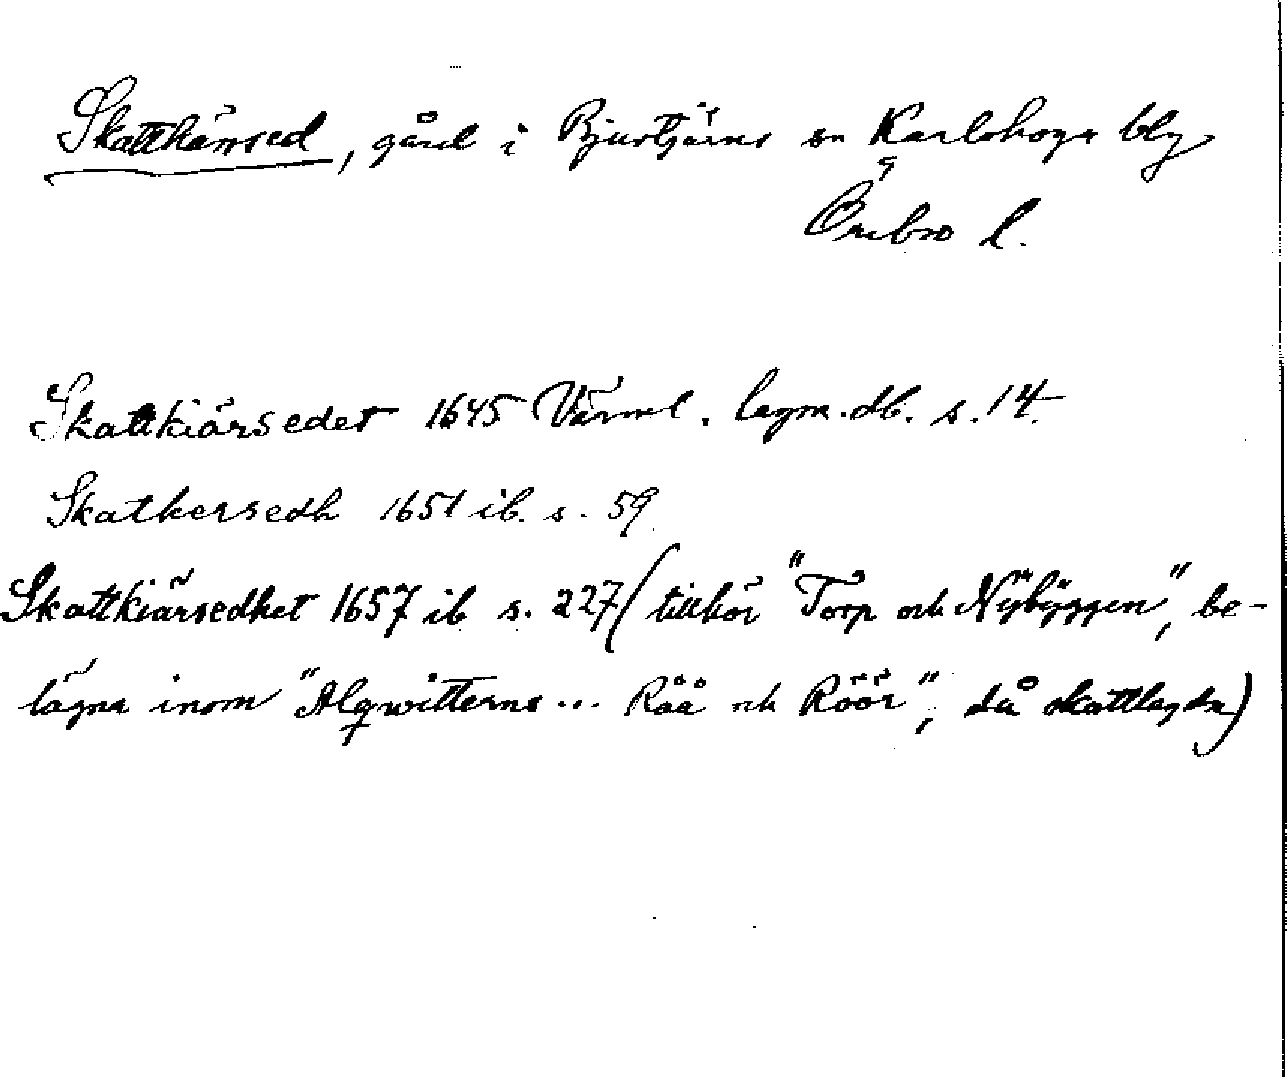 Skattkärrsed, gård i Bjurtjärns sn Karlskoga blg
Örebro l.
Skattkiärsedet 1645 Värml. lagm.db. s. 14.
Skatkersedh 1651 ib. s. 59
Skattkiärsedhet 1657 ib s. 227 (tillhör "Torp och Nÿbÿggen", be-
lägna inom "Algwitterns ... Råå och Röör", då skattlagda)